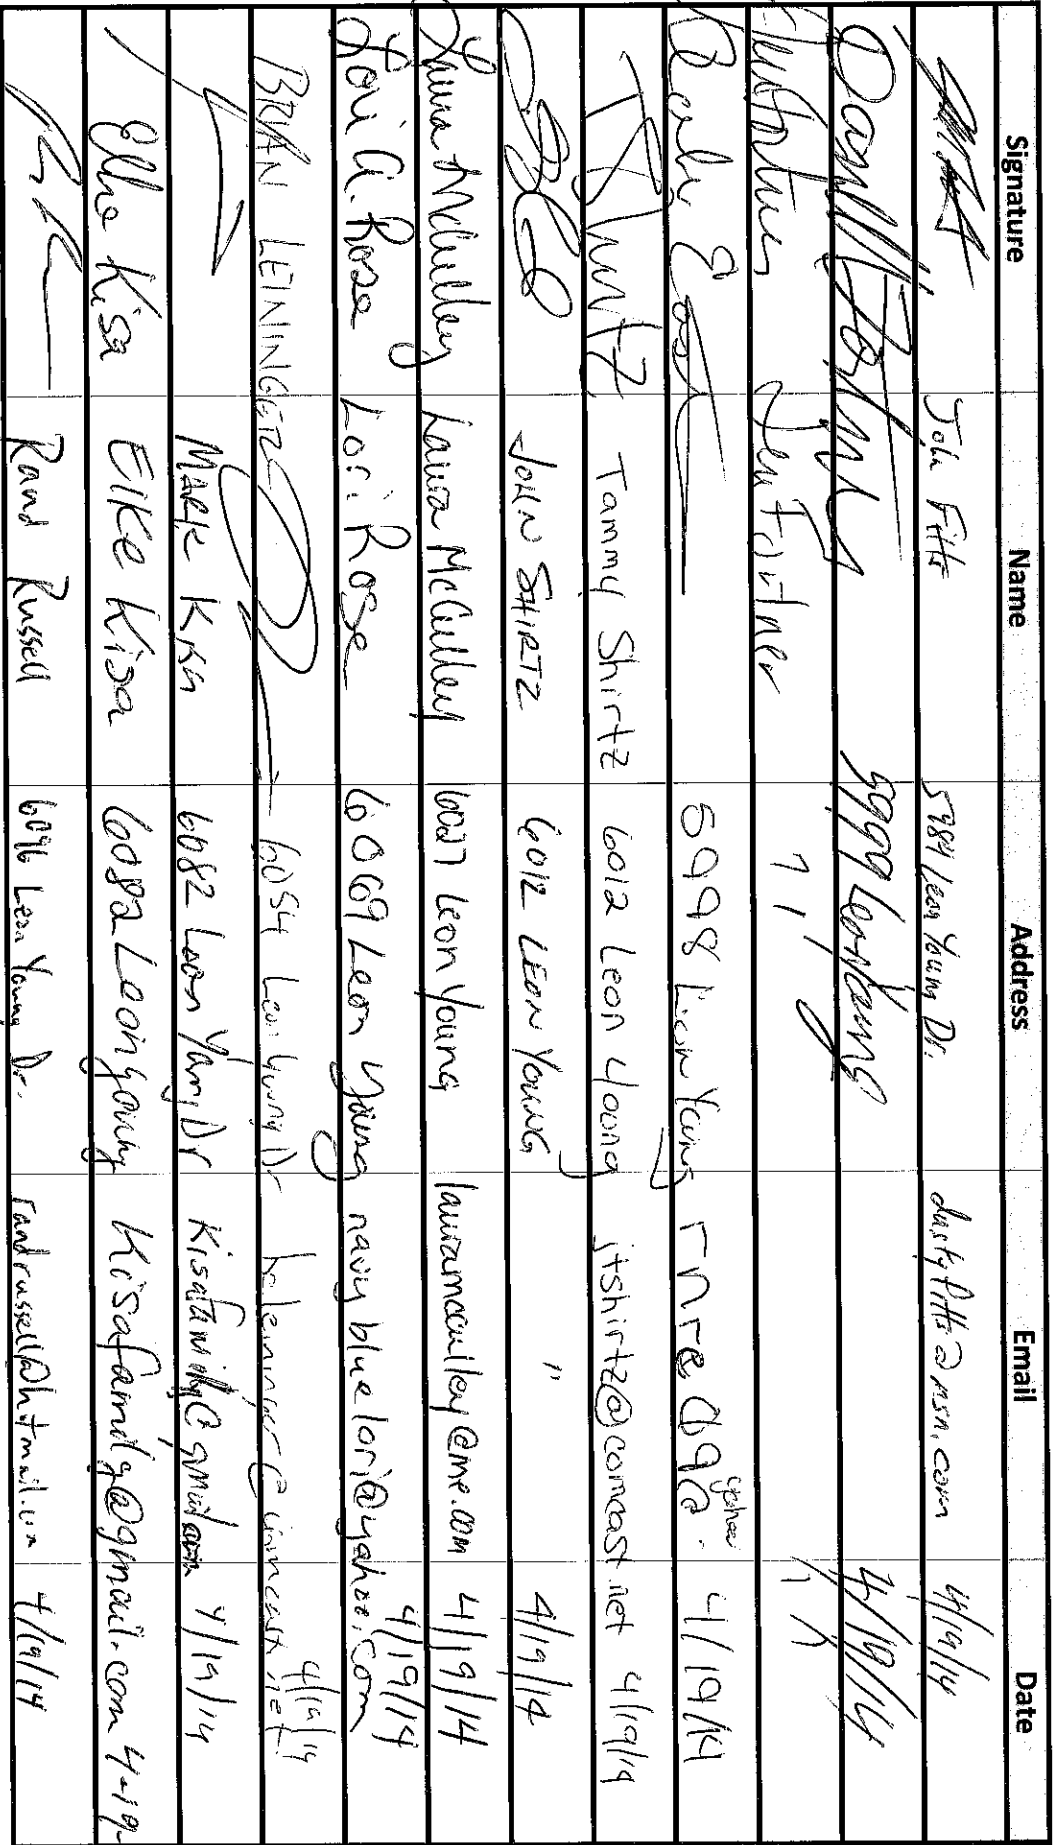 Signature Name Address Email Date
John Fitts 5984 Leon Young Dr. dustyfitts@msn.com 4/19/14
5990 Leon Young 4/19/14
Jen Fortner " "
5998 Leon Young 4/19/14
TShirtz Tammy Shirtz 6012 Leon Young jtshirtz@comcast.net 4/19/14
JOHN SHIRTZ 6012 LEON YOUNG " 4/19/14
Laura McCulley Laura McCulley 6027 Leon Young lauramcculley@me.com 4/19/14
Lori A. Rose Lori Rose 6069 Leon Young navybluelori@yahoo.com 4/19/14
BRIAN LEININGER 6054 Leon Young Dr 4/19/14
MARK KISA 6082 Leon Young Dr Kisafamily@gmail.com 4/19/14
Elke Kisa Elke Kisa 6082 Leon Young Kisafamily@gmail.com 4-19-
Rand Russell 6096 Leon Young Dr. randrussell@hotmail.com 4/19/14